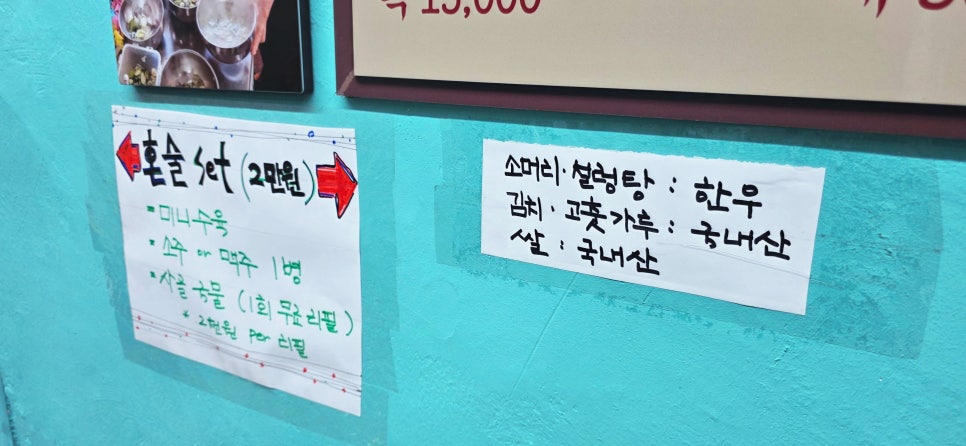 15,000
혼술 set (2만원)
미니수육
소주 or 맥주 1병
사골국물 (1회 무료리필)
* 2천원 per 리필
소머리·설렁탕 : 한우
김치·고춧가루 : 국내산
쌀 : 국내산